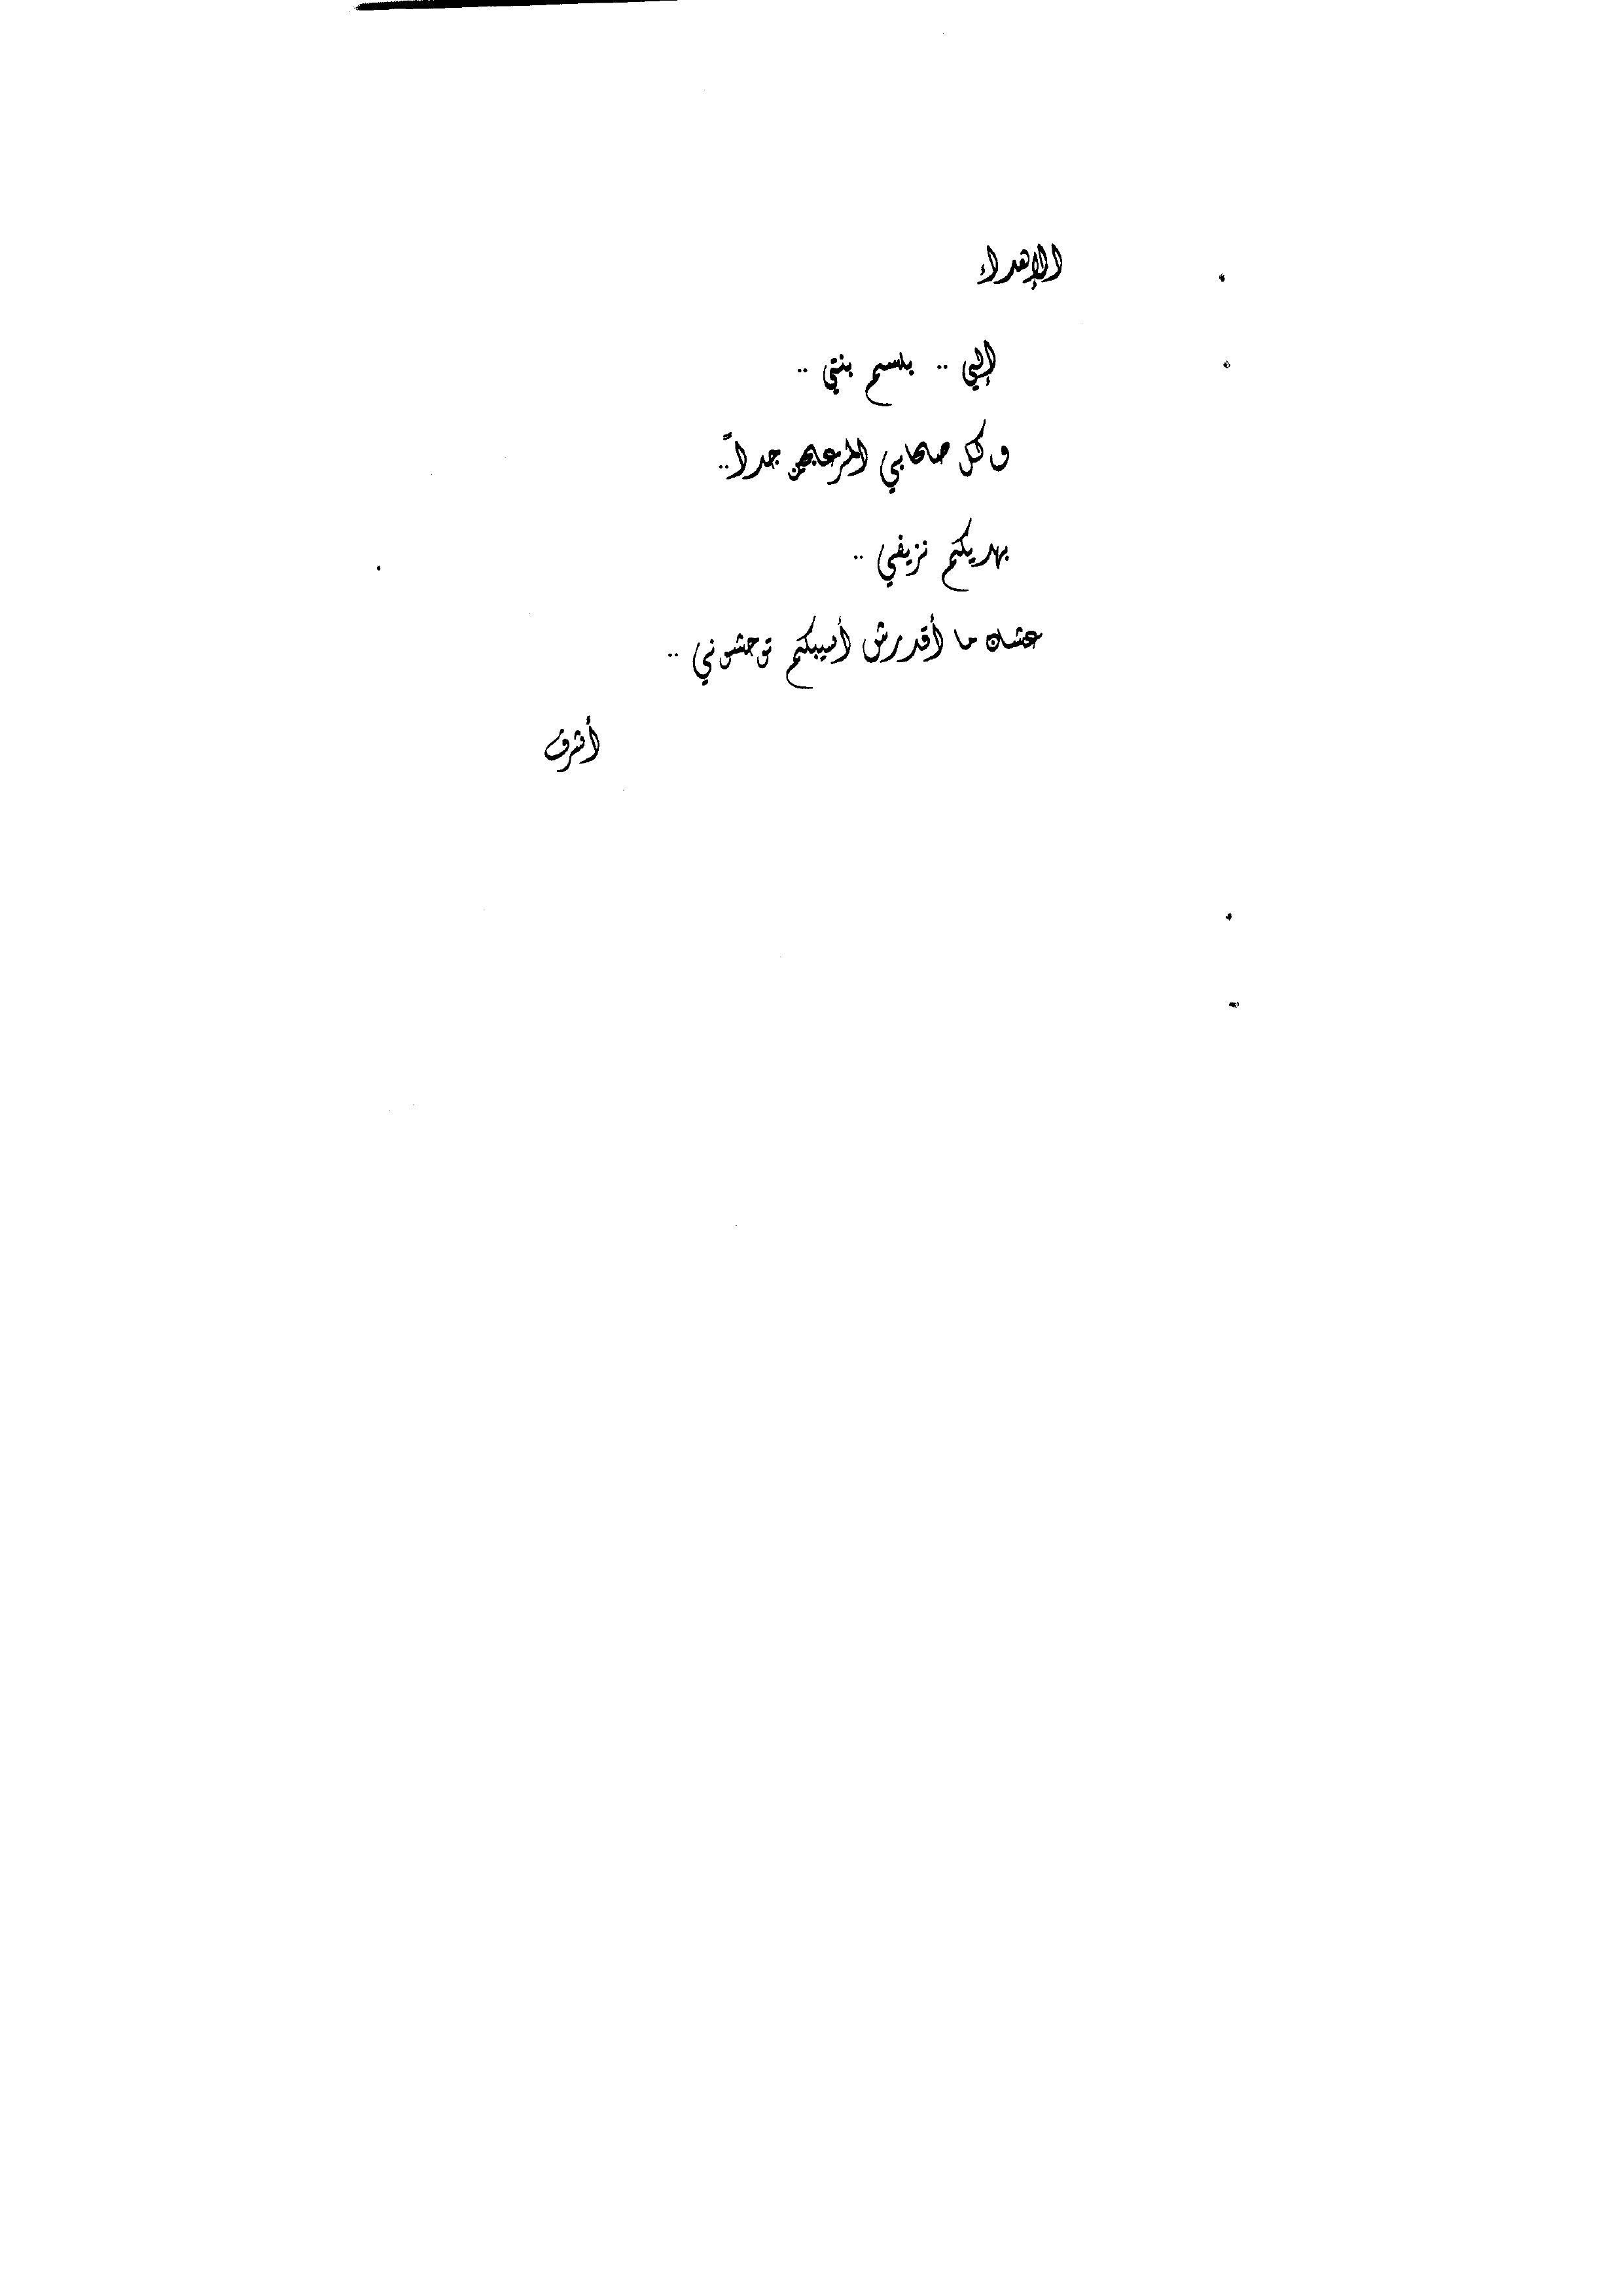 الإهداء
إلي .. بلسم بنتي ..
وكل صحابي المزعجين جداً ..
بهديكم نزيفي ..
عشان ما أقدرش أسيبكم توحشوني ..
أشرف